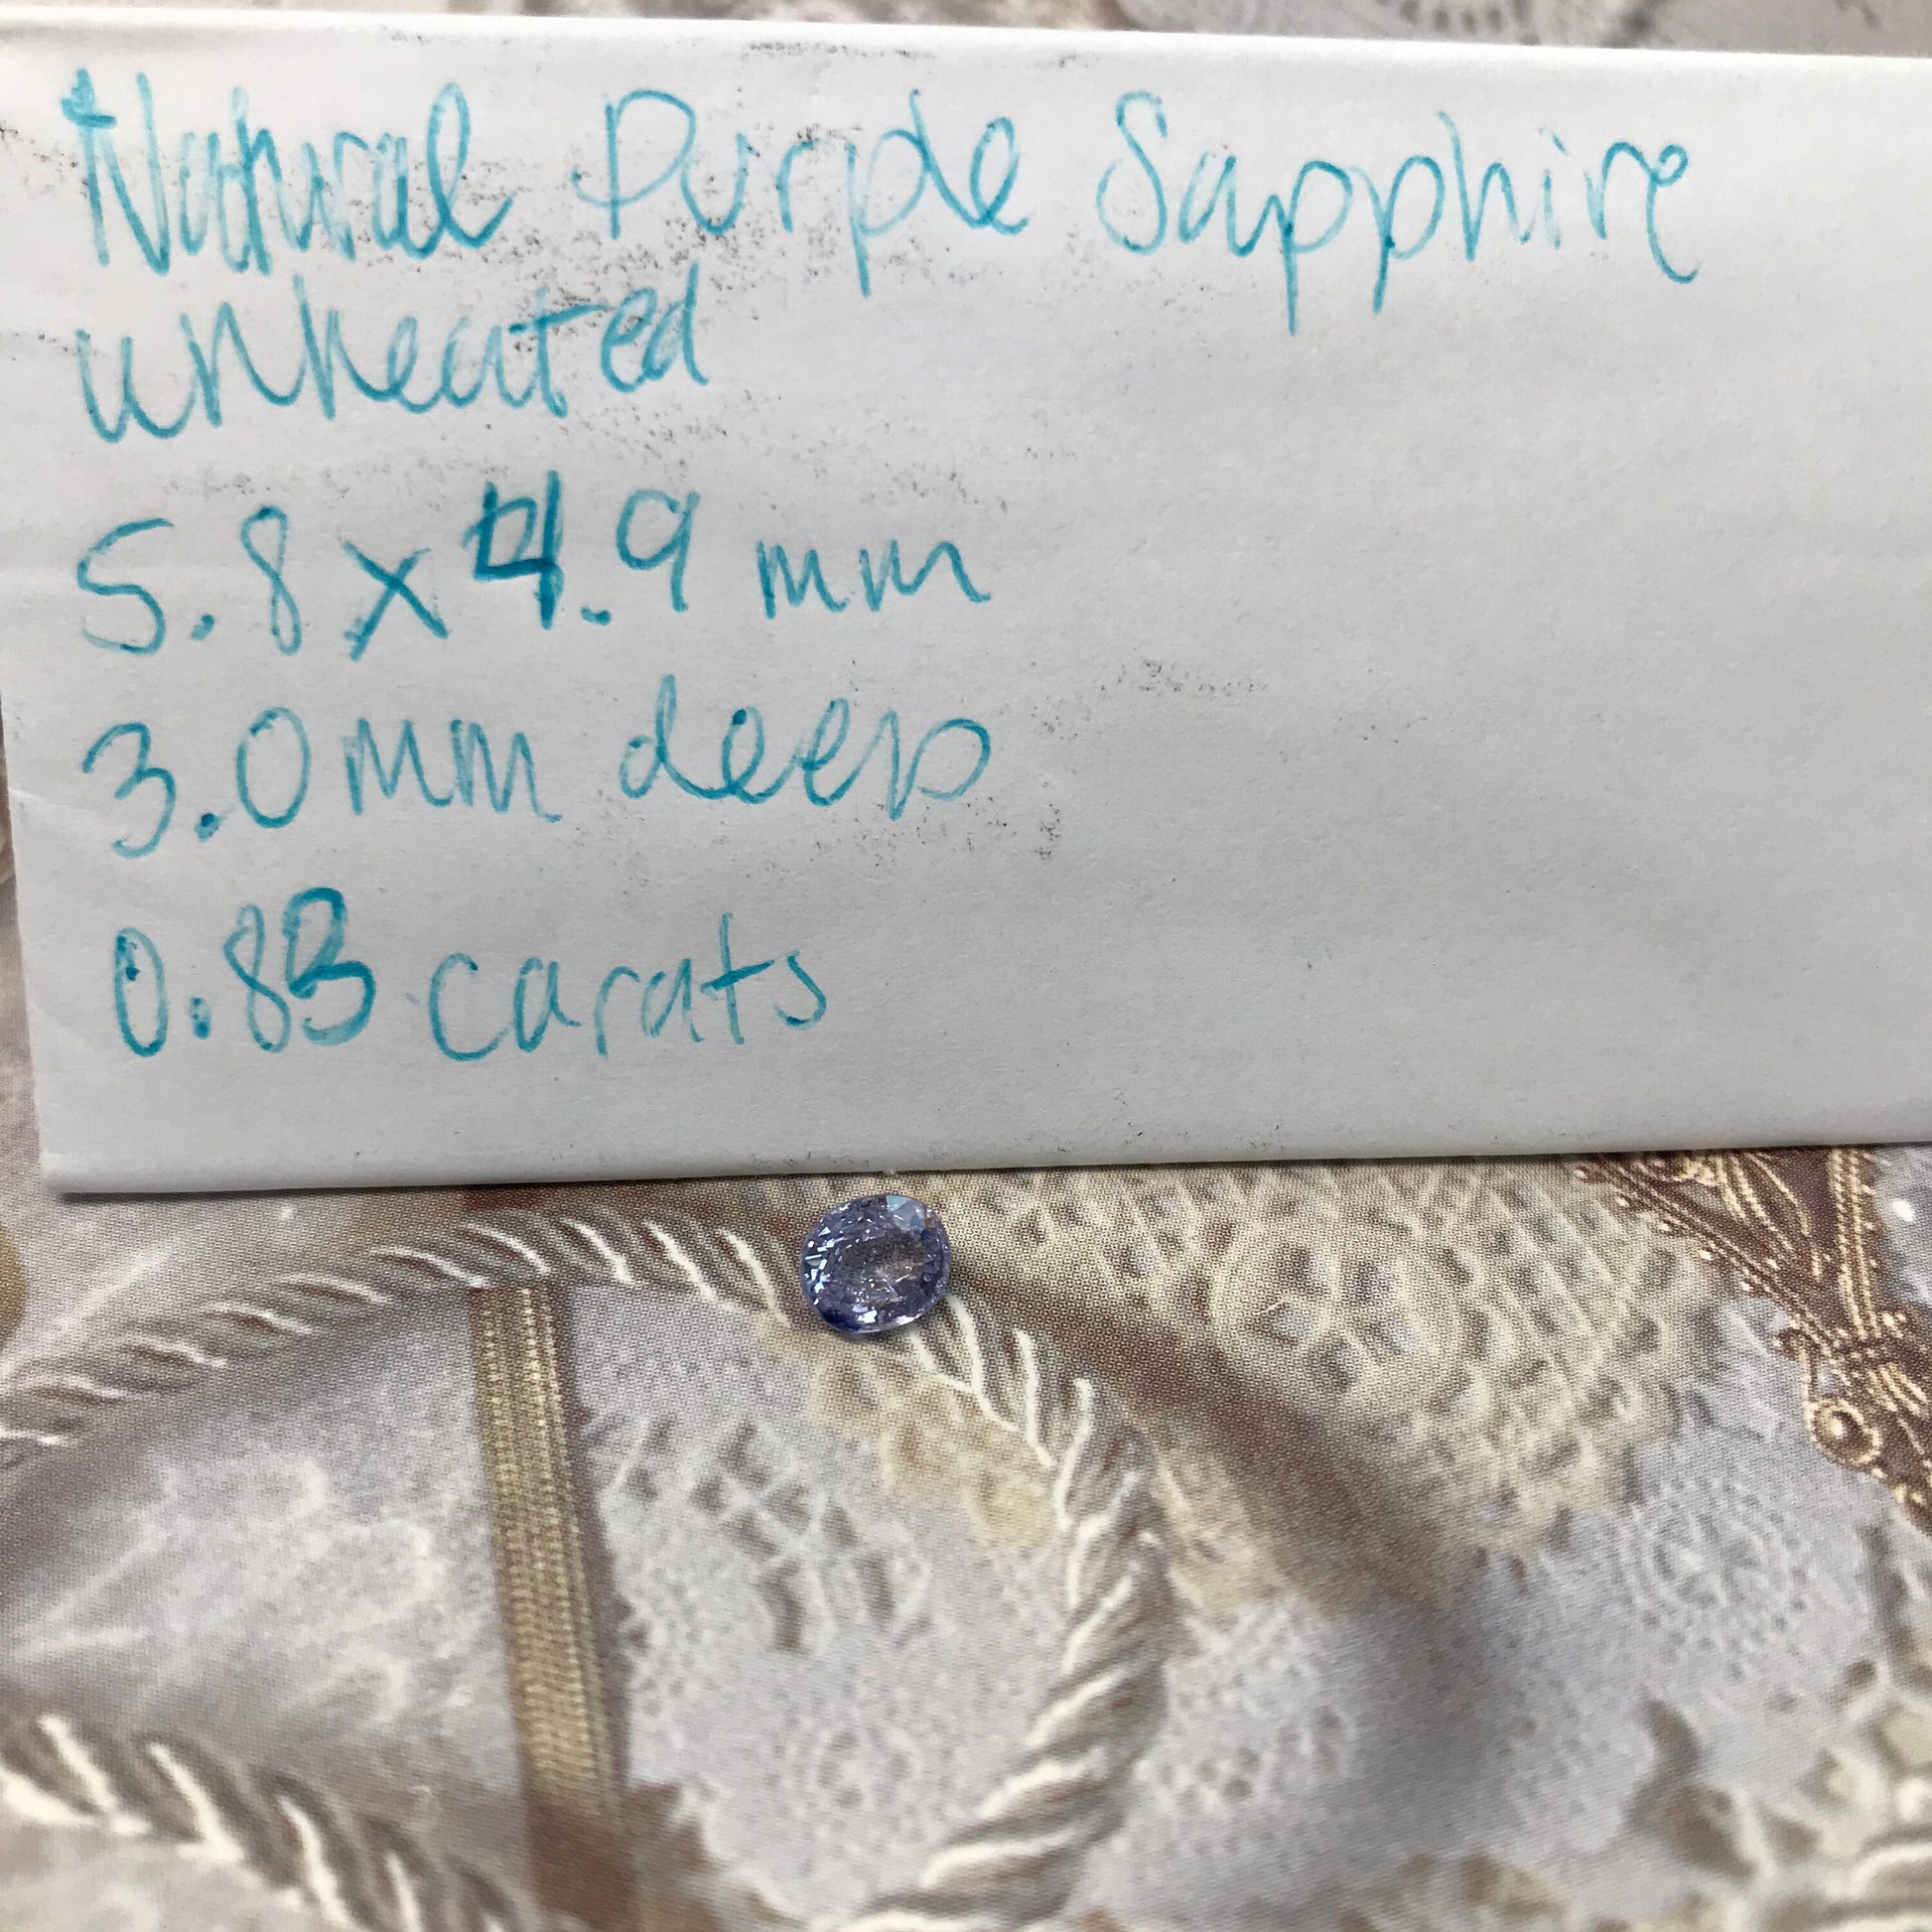 Natural Purple Sapphire
unheated
5.8x4.9 mm
3.0mm deep
0.83 carats